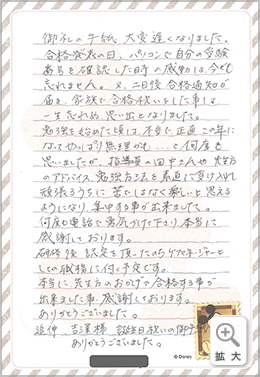 御礼の手紙 大変遅くなりました。
合格発表の日、パソコンで自分の受験
番号を確認した時の感動は、今でも
忘れません。又、二日後 合格通知が
届き、家族で合格祝いをした事は
一生忘れぬ思い出となりました。
勉強を始めた頃は、不安と正直この年に
なってやっぱり無理かも…と何度も
思いましたが、指導員の田中さんや先生方
のアドバイス、勉強方法を素直に受け入れ
頑張るうちに苦でしはなく楽しいと思える
ようになり、集中する事が出来ました。
何度も電話で勇気づけて下り、本当に
感謝しております。
研修後 認定を頂いたらケアマネージャーと
しての職務に付く予定です。
本当に先生方のおかげで合格する事が
出来ました事、感謝しております。
ありがとうございました。
追伸 吉澤様 誕生日祝いの御手紙
ありがとうございました。
© Disney
拡大